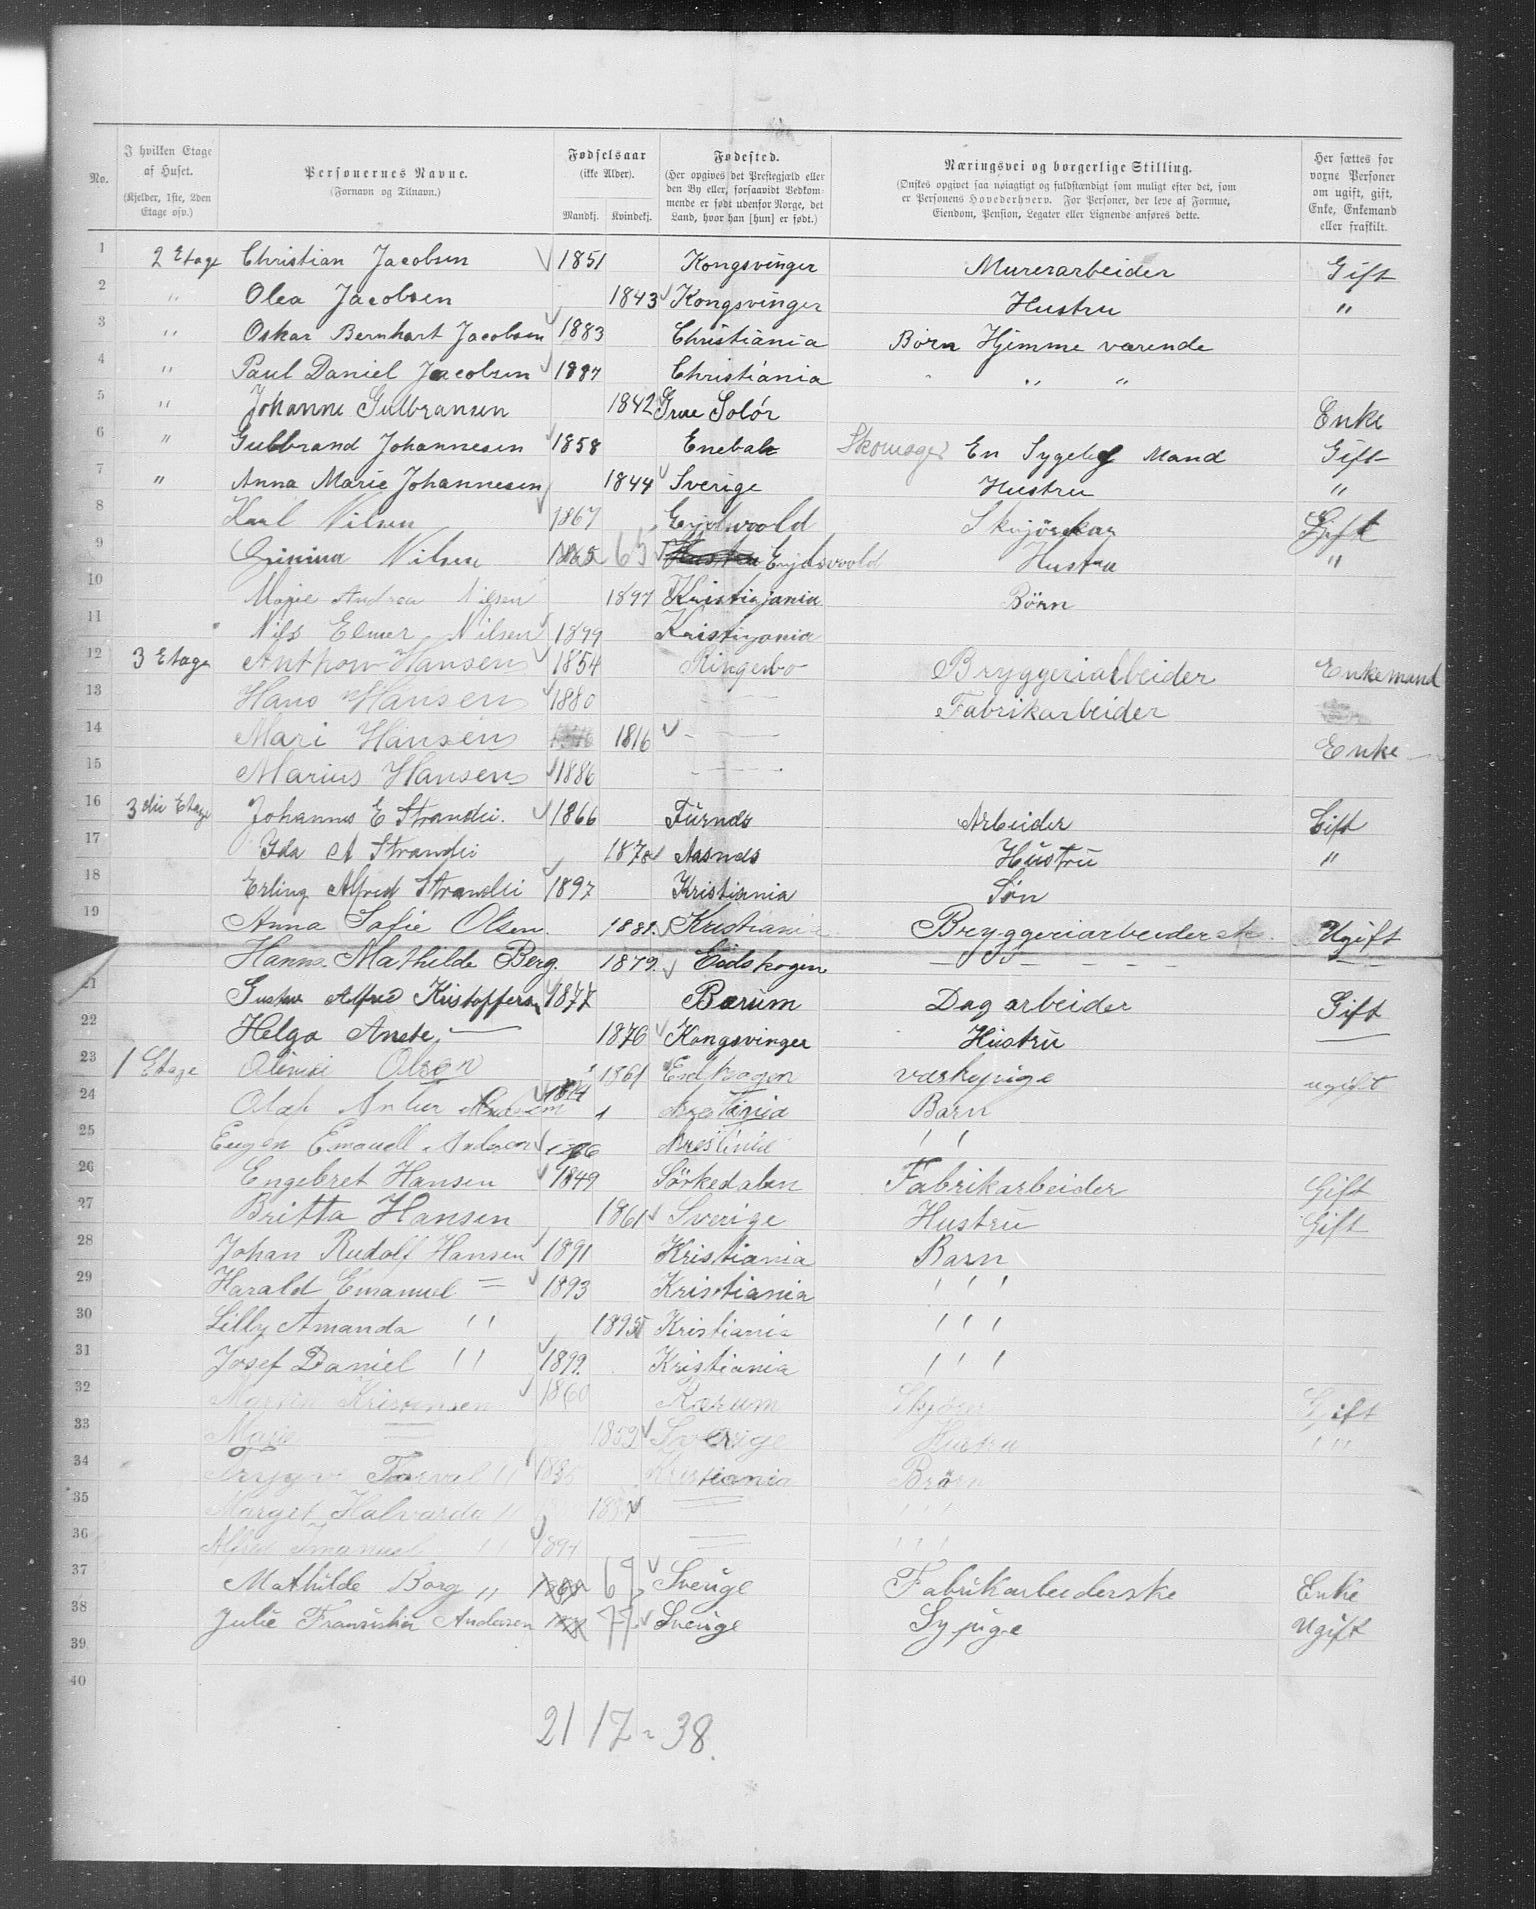 No. | I hvilken Etage af Huset. (Kjelder, 1ste, 2den Etage osv.) | Personernes Navne. (Fornavn og Tilnavn.) | Fødselsaar (ikke Alder). Mandkj. Kvindekj. | Fødested. (Her opgives det Prestegjæld eller den By eller, forsaavidt Vedkommende er født udenfor Norge, det Land, hvor han [hun] er født.) | Næringsvei og borgerlige Stilling. (Ønskes opgivet saa nøiagtigt og fuldstændigt som muligt efter det, som er Personens Hovederhverv. For Personer, der leve af Formue, Eiendom, Pension, Legater eller Lignende anføres dette.) | Her sættes for voxne Personer om ugift, gift, Enke, Enkemand eller fraskilt.
1 2 Etage Christian Jacobsen 1851 Kongsvinger Murerarbeider Gift
2 " Olea Jacobsen 1843 Kongsvinger Hustru "
3 " Oskar Bernhart Jacobsen 1883 Christiania Børn Hjemme værende
4 " Paul Daniel Jacobsen 1887 Christiania " "
5 " Johanne Gulbransen 1842 Grue Solør Enke
6 " Gulbrand Johannesen 1858 Enebak Skomager En Sygelig Mand Gift
7 " Anna Marie Johannesen 1844 Sverige Hustru "
8 Karl Nilsen 1867 Eijdsvoold Gift
9 Nilsen 65 Eijdsvoold Hustru "
10 Marie Andrea Nilsen 1897 Kristiajania Børn
11 Nils Elmer Nilsen 1899 Kristijania
12 3 Etage Anthon Hansen 1854 Ringebo Bryggeriarbeider Enkemand
13 Hans Hansen 1880 - - Fabrikarbeider
14 Mari Hansen 1816 - - Enke
15 Marius Hansen 1886 - -
16 3die Etage Johannes E Strandli. 1866 Furnds Arbeider Gift
17 Ida A Strandli 1870 Aasnds Hustru "
18 Erling Alfred Strandli 1897 Kristiania Søn
19 Anna Sofie Olsen. 1881. Kristiania Bryggeriarbeiderske. Ugift
Hanna Mathilde Berg. 1879. Eidskogen - - - - - -
21 Gustav Alfred Kristoffersen 1877 Bærum Dagarbeider Gift
22 Helga Anete, — 1876 Kongsvinger Hustru —
23 1 Etage Olsen 1861 Eidskogen vaskepige ugift
24 Olaf 1 Barn
25 Eugen Emanuell Andersen ' '
26 Engebret Hansen 1849 Sörkedalen Fabrikarbeider Gift
27 Britta Hansen 1861 Sverige Hustru Gift
28 Johan Rudolf Hansen 1891 Kristiania Barn
29 Harald Emanuel = 1893 Kristiania ' ' '
30 Lilly Amanda " 1895 Kristiania ' ' '
31 Josef Daniel " 1899. Kristiania ' ' '
32 Martin Kristensen 1860 Bærum Gift
33 = 1859 Sverige Hustru "
34 " Kristiania Børn
35 Margit Halvarda " = ' ' '
36 Alfred Imanuel " 1897 = ' ' '
37 Mathilde Borg " 69 Sverige Fabrikarbeiderske Enke
38 Julie Fransiska Andersen 77 Sverige Sypige Ugift
39
40
21 17 = 38.